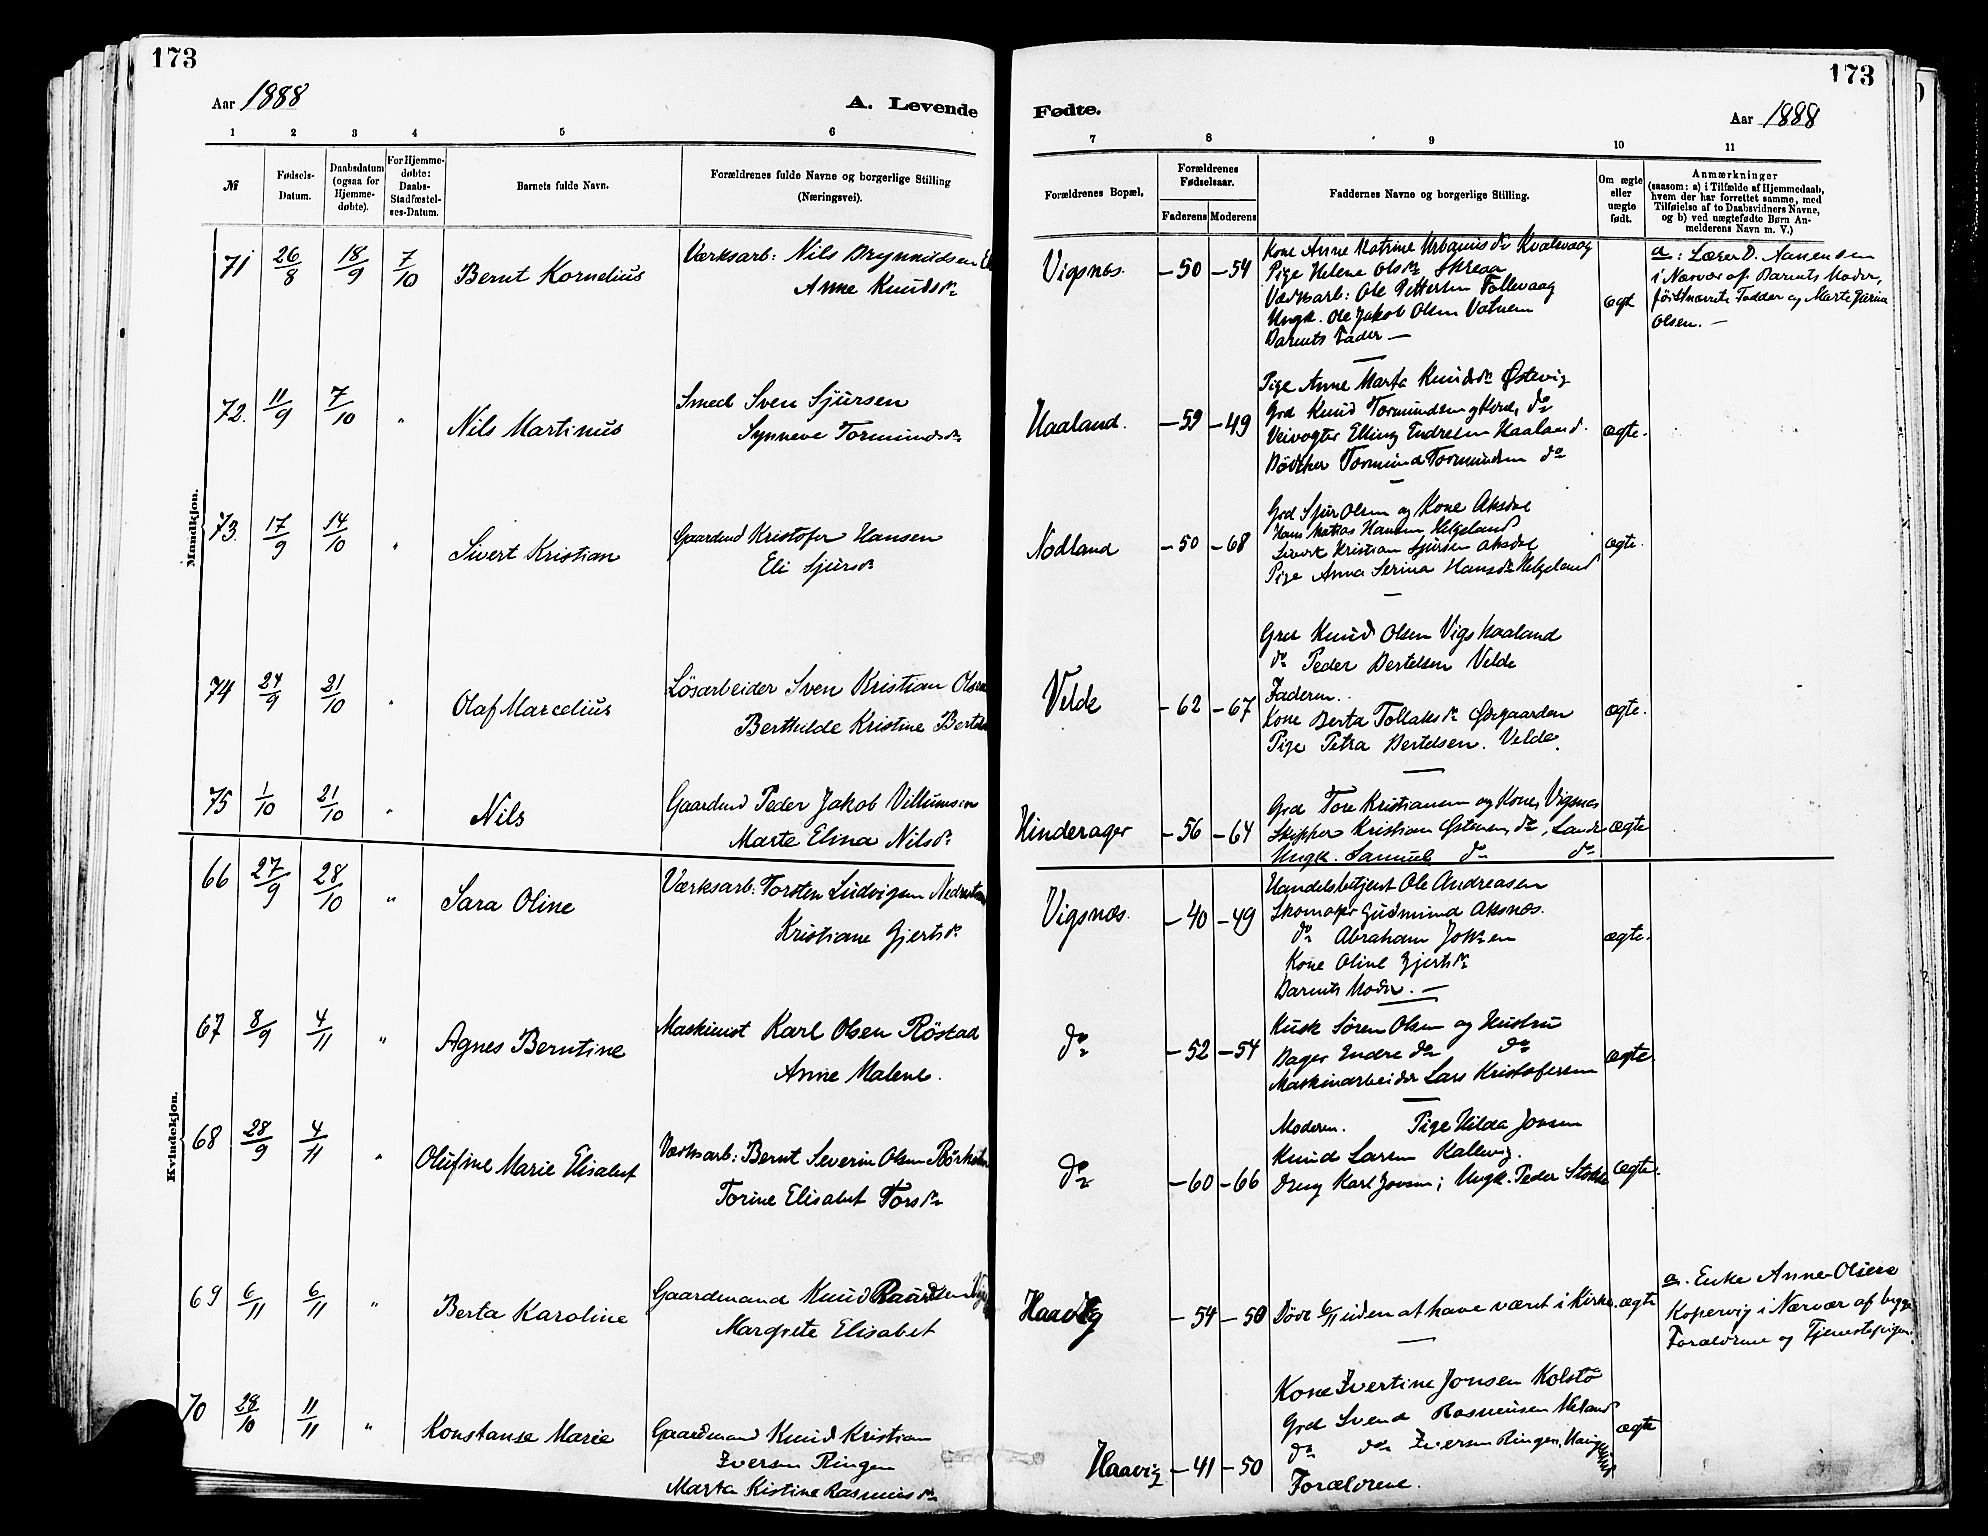 173
Aar 1888
A. Levende
1 2 3 4 5 6
№
Fødsels-
Datum.
Daabsdatum
(ogsaa for
Hjemme-
døbte).
For Hjemme-
døbte:
Daabs-
Stadfæstel-
ses-Datum.
Barnets fulde Navn.
Forældrenes fulde Navne og borgerlige Stilling
(Næringsvei).
Mandkjøn.
71 26/8 18/9 7/10 Bernt Kornelius
Værksarb: Nils Brynnildsen
Anne Knudsdr
72. 11/9 7/10 " Nils Martinus
Smed Sven Sjursen
Synneve Tormundsdr
73. 17/9 14/10 " Sivert Kristian
Gaardmd Kristofer Hansen
Eli Sjursdr
74 24/9 21/10 " Olaf Marcelius
Løsarbeider Sven Kristian Olsen
Berthilde Kristine
75 1/10 21/10 " Nils
Gaardmd Peder Jakob Villumsen
Marte Elina Nilsdr
Kvindekjøn.
66 27/9 28/10 " Sara Oline
Værksarb: Torsten Ludvigsen
Kristiane Gjertsdr
67 8/9 4/11 " Agnes Berntine
Maskinist Karl Olsen Röstad
Anne Malene.
68 28/9 4/11 " Olufine Marie Elisabet
Værksarb: Bernt Severin Olsen
Torine Elisabet Torsdr
69 6/11 6/11 " Berta Karoline
Gaardmand Knud
Margrete Elisabet
70 29/10 11/11 " Konstanse Marie
Gaardmand Knud Kristian
Iversen Ringen
Marta Kistine Rasmusdr
173
Fødte.
Aar 1888
7 8 9 10 11
Forældrenes Bopæl,
Forældrenes
Fødselsaar.
Faderens Moderens
Faddernes Navne og borgerlige Stilling.
Om ægte
eller
uægte
født.
Anmærkninger
(saasom: a) i Tilfælde af Hjemmedaab,
hvem der har forrettet samme, med
Tilføielse af to Daabsvidners Navne,
og b) ved uægtefødte Børn An-
melderens Navn m. V.)
Vigsnes. -50 -54
Kone Anne Katrine Urbanusdr Kvalevaag
Pige Helene Olsdr Skreaa
Værksarb: Ole Pettersen Follevaag
Ungk. Ole Jakob Olsen Vatnem
Barnets Fader —
ægt
a: Lærer D. Nansen
i Nærvær af Barnets Moder,
förstnævnte Fadder og Marte
Olsen. —
Haaland. -59 -49
Pige Anne Marta Knudsdr Østevig
Grd Knud Tormundsen og Kone, do
Veivogter Elling Endresen Haaland.
Bödker Tormund Tormundsen do
ægte.
Nodland -50 -68
Grd Sjur Olsen og Kone Aksdal
Hans Matias Hansen Helgeland
Kristian Sjursen Aksdal
Pige Anna Serina Hansdr Helgeland
ægte.
Velde -62 -67
Grd Knud Olsen Vigs Haaland
do Peder Bertelsen Velde
Faderen.
Kone Berta Tollaksdr Østgaarden
Pige Petra Bertelsen. Velde.
ægte.
Hinderager -56 -64
Grd Tore Kristiansen og Kone, Vigsnes
Skipper Kristian Østensen, do, Lande
Ungk. Samuel do do
ægte
Vigsnæs. -40 -49
Handelsbetjent Ole Andreasen
Skomager Gudmund Aksnæs.
do Abraham
Kone Oline Gjertsdr
Barnets Moder. —
ægte.
do -52 -54
Kusk Sören Olsen og Hustru
Bager Endre do do
Maskinarbeider Lars Kristofersen
ægte.
do -60 -66
Moderen. Pige Hilda Jonsen
Knud Larsen Kallevig.
Dreng Karl Jonsen; Ungk. Peder Stokke
ægte.
Haavig -54 -50
Döde 6/11 uden at have været i Kirke.
ægte
a. Enke Anne Olsen
Kopervig i Nærvær af begge
Forældrene og Tjenestepigen.
Haavig -41 -50
Kone Ivertine Jonsen Kolstö
Grd Svend Rasmussen Meland
do do Iversen Ringen,
Forældrene.
ægte